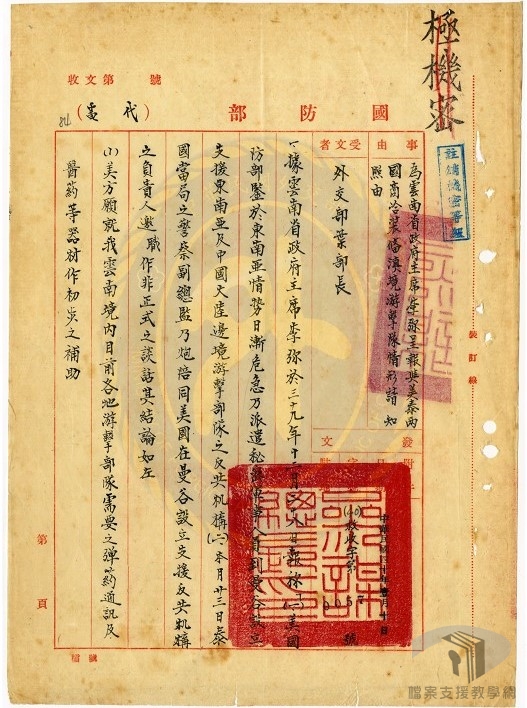 極機密
註銷機密等級
裝訂線
號 第文收
國防部
(代電)
事由
受文者
為雲南省政府主席李彌呈報與美泰兩
國商洽裝備滇境游擊隊情形請知
照由
外交部葉部長
發文
附
日
字
(40)
號
一、據雲南省政府主席李彌於三十九年十二月
日報稱(一)美國
防部鑒於東南亞情勢日漸危急乃派遣秘
人員到曼谷設立
支援東南亞及中國大陸邊境游擊部隊之反共机構(二)本月廿三日泰
國當局之警察副總監乃炮陪同美國在曼谷設立支援反共机構
之負責人邀職作非正式之談話其結論如左
(1)美方願就我雲南境內目前各地游擊部隊需要之彈葯通訊及
醫葯等器材作初炎之補助
第 頁
檔號
檔案支援教學網